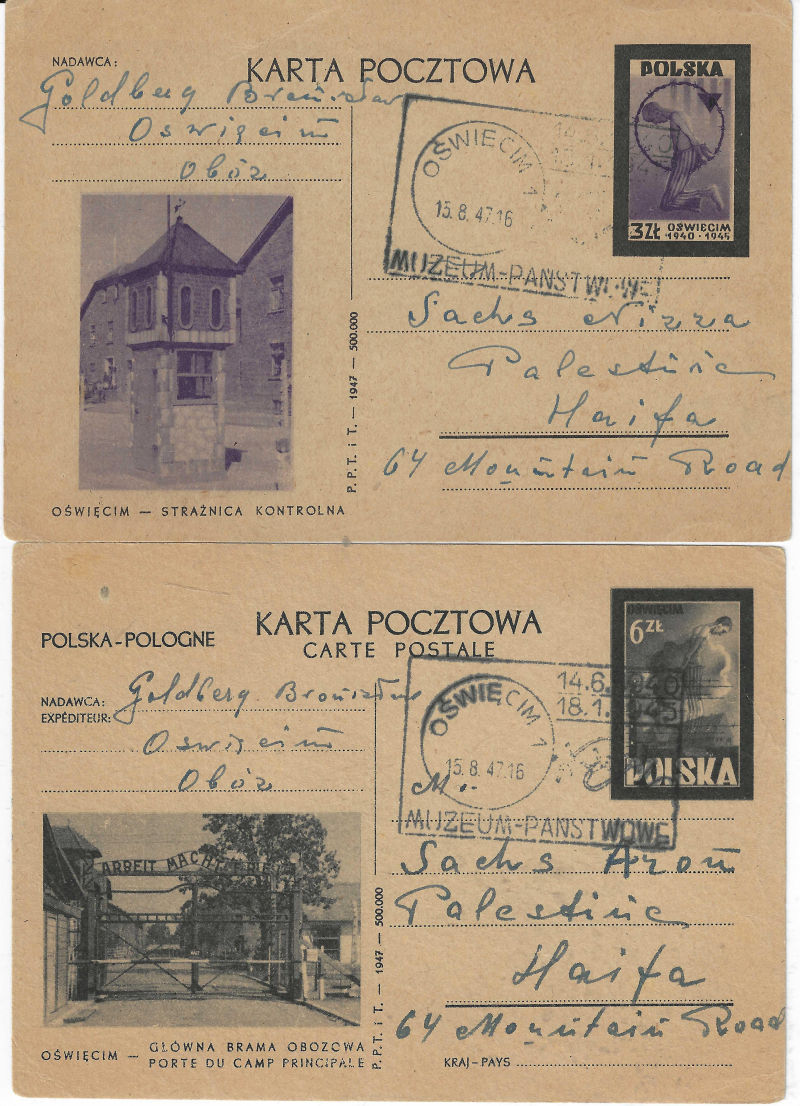 NADAWCA:
KARTA POCZTOWA
Goldberg Bronisław
Oswięcim
Obóz
POLSKA
3ZŁ OŚWIĘCIM
1940 · 1945
OŚWIĘCIM 1
15.8.47.16
MUZEUM-PAŃSTWOWE
Sachs Nizza
Palestine
Haifa
64 Mountain Road
P.P.T. i T. — 1947 — 500.000
OŚWIĘCIM — STRAŻNICA KONTROLNA
POLSKA-POLOGNE
KARTA POCZTOWA
CARTE POSTALE
NADAWCA:
EXPÉDITEUR:
Goldberg Bronisław
Oswięcim
Obóz
OŚWIĘCIM
6ZŁ
POLSKA
OŚWIĘCIM 1
14.6.1940
18.1.1945
15.8.47.16
MUZEUM-PAŃSTWOWE
M.
Sachs Aron
Palestine
Haifa
64 Mountain Road
KRAJ-PAYS
P.P.T. i T. — 1947 — 500.000
ARBEIT MACHT FREI
OŚWIĘCIM — GŁÓWNA BRAMA OBOZOWA
PORTE DU CAMP PRINCIPALE